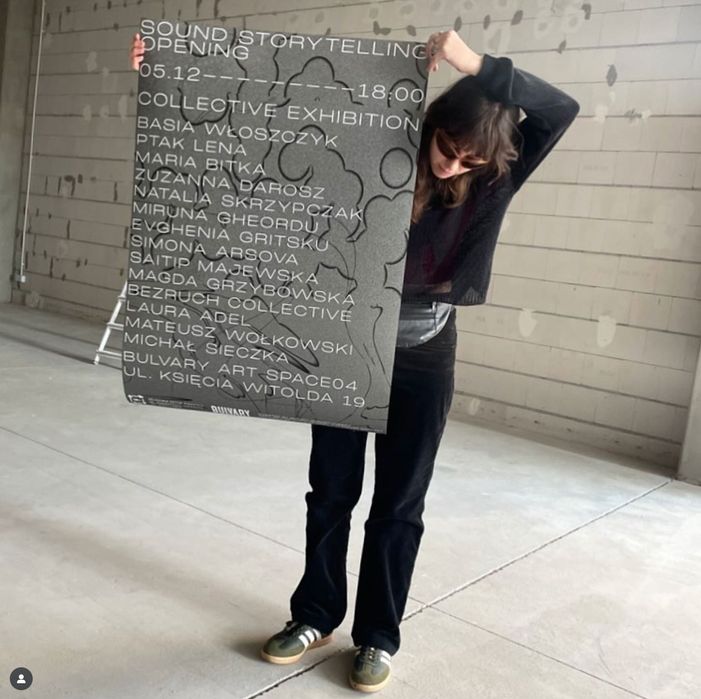 SOUND STORYTELLING
OPENING
05.12----------18:00
COLLECTIVE EXHIBITION
BASIA WŁOSZCZYK
PTAK LENA
MARIA BITKA
ZUZANNA DAROSZ
NATALIA SKRZYPCZAK
MIRUNA GHEORDU
EVGHENIA GRITSKU
SIMONA ARSOVA
SAITIP MAJEWSKA
MAGDA GRZYBOWSKA
BEZRUCH COLLECTIVE
LAURA ADEL
MATEUSZ WOŁKOWSKI
MICHAŁ SIECZKA
BULVARY ART SPACE04
UL. KSIĘCIA WITOLDA 19
BULVARY